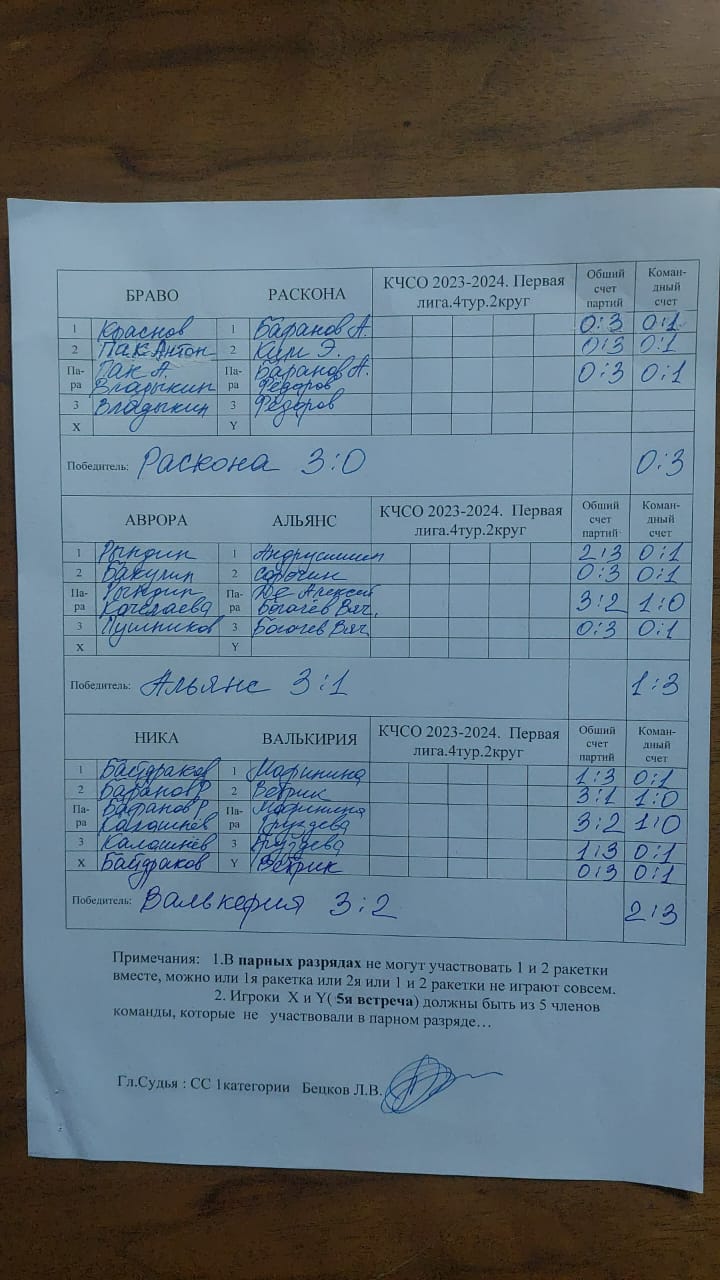 БРАВО РАСКОНА КЧСО 2023-2024. Первая лига.4тур.2круг Общий счет партий Коман-дный счет
1 Краснов 1 Баранов А. 0:3 0:1
2 Пак Антон 2 Ким Э. 0:3 0:1
Па-ра Пак А. Па-ра Баранов А. 0:3 0:1
Владыкин Федоров
3 Владыкин 3 Федоров
X Y
Победитель: Раскона 3:0 0:3
АВРОРА АЛЬЯНС КЧСО 2023-2024. Первая лига.4тур.2круг Общий счет партий Коман-дный счет
1 Рындин 1 2:3 0:1
2 Бакулин 2 Сорочин 0:3 0:1
Па-ра Рындин Па-ра Де Алексей 3:2 1:0
Богачёв Вяч.
3 Пушников 3 Богачев Вяч. 0:3 0:1
X Y
Победитель: Альянс 3:1 1:3
НИКА ВАЛЬКИРИЯ КЧСО 2023-2024. Первая лига.4тур.2круг Общий счет партий Коман-дный счет
1 Байдраков 1 Маринина 1:3 0:1
2 Баранов Р 2 3:1 1:0
Па-ра Баранов Р Па-ра Маринина 3:2 1:0
Калашнёв Груздева
3 Калашнёв 3 Груздева 1:3 0:1
X Байдраков Y 0:3 0:1
Победитель: Валькирия 3:2 2:3
Примечания: 1.В парных разрядах не могут участвовать 1 и 2 ракетки
вместе, можно или 1я ракетка или 2я или 1 и 2 ракетки не играют совсем.
2. Игроки X и Y( 5я встреча) должны быть из 5 членов
команды, которые не участвовали в парном разряде…
Гл.Судья : СС 1категории Бецков Л.В.